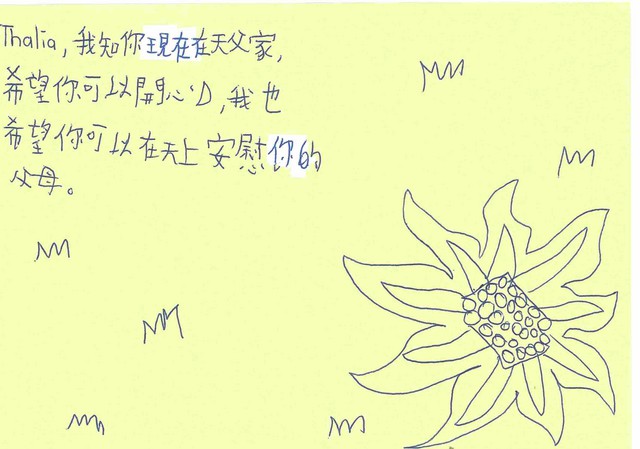 Thalia, 我知你現在在天父家,
希望你可以開心:D, 我也
希望你可以在天上安慰你的
父母。